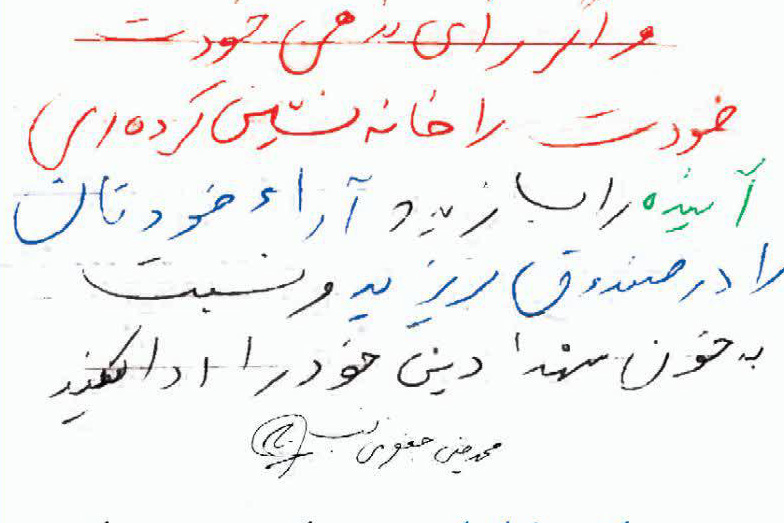 و اگر رای ندهی خودت
خودت را خانه نشین کرده ای
آینده را بسازید و آراء خودتان
را در صندوق بریزید و نسبت
به خون شهدا دین خود را ادا کنید
جعفری نسب